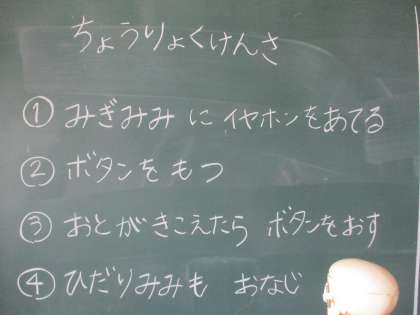 ちょうりょくけんさ
① みぎみみ に イヤホンをあてる
② ボタンを もつ
③ おとが きこえたら ボタンをおす
④ ひだりみみも おなじ